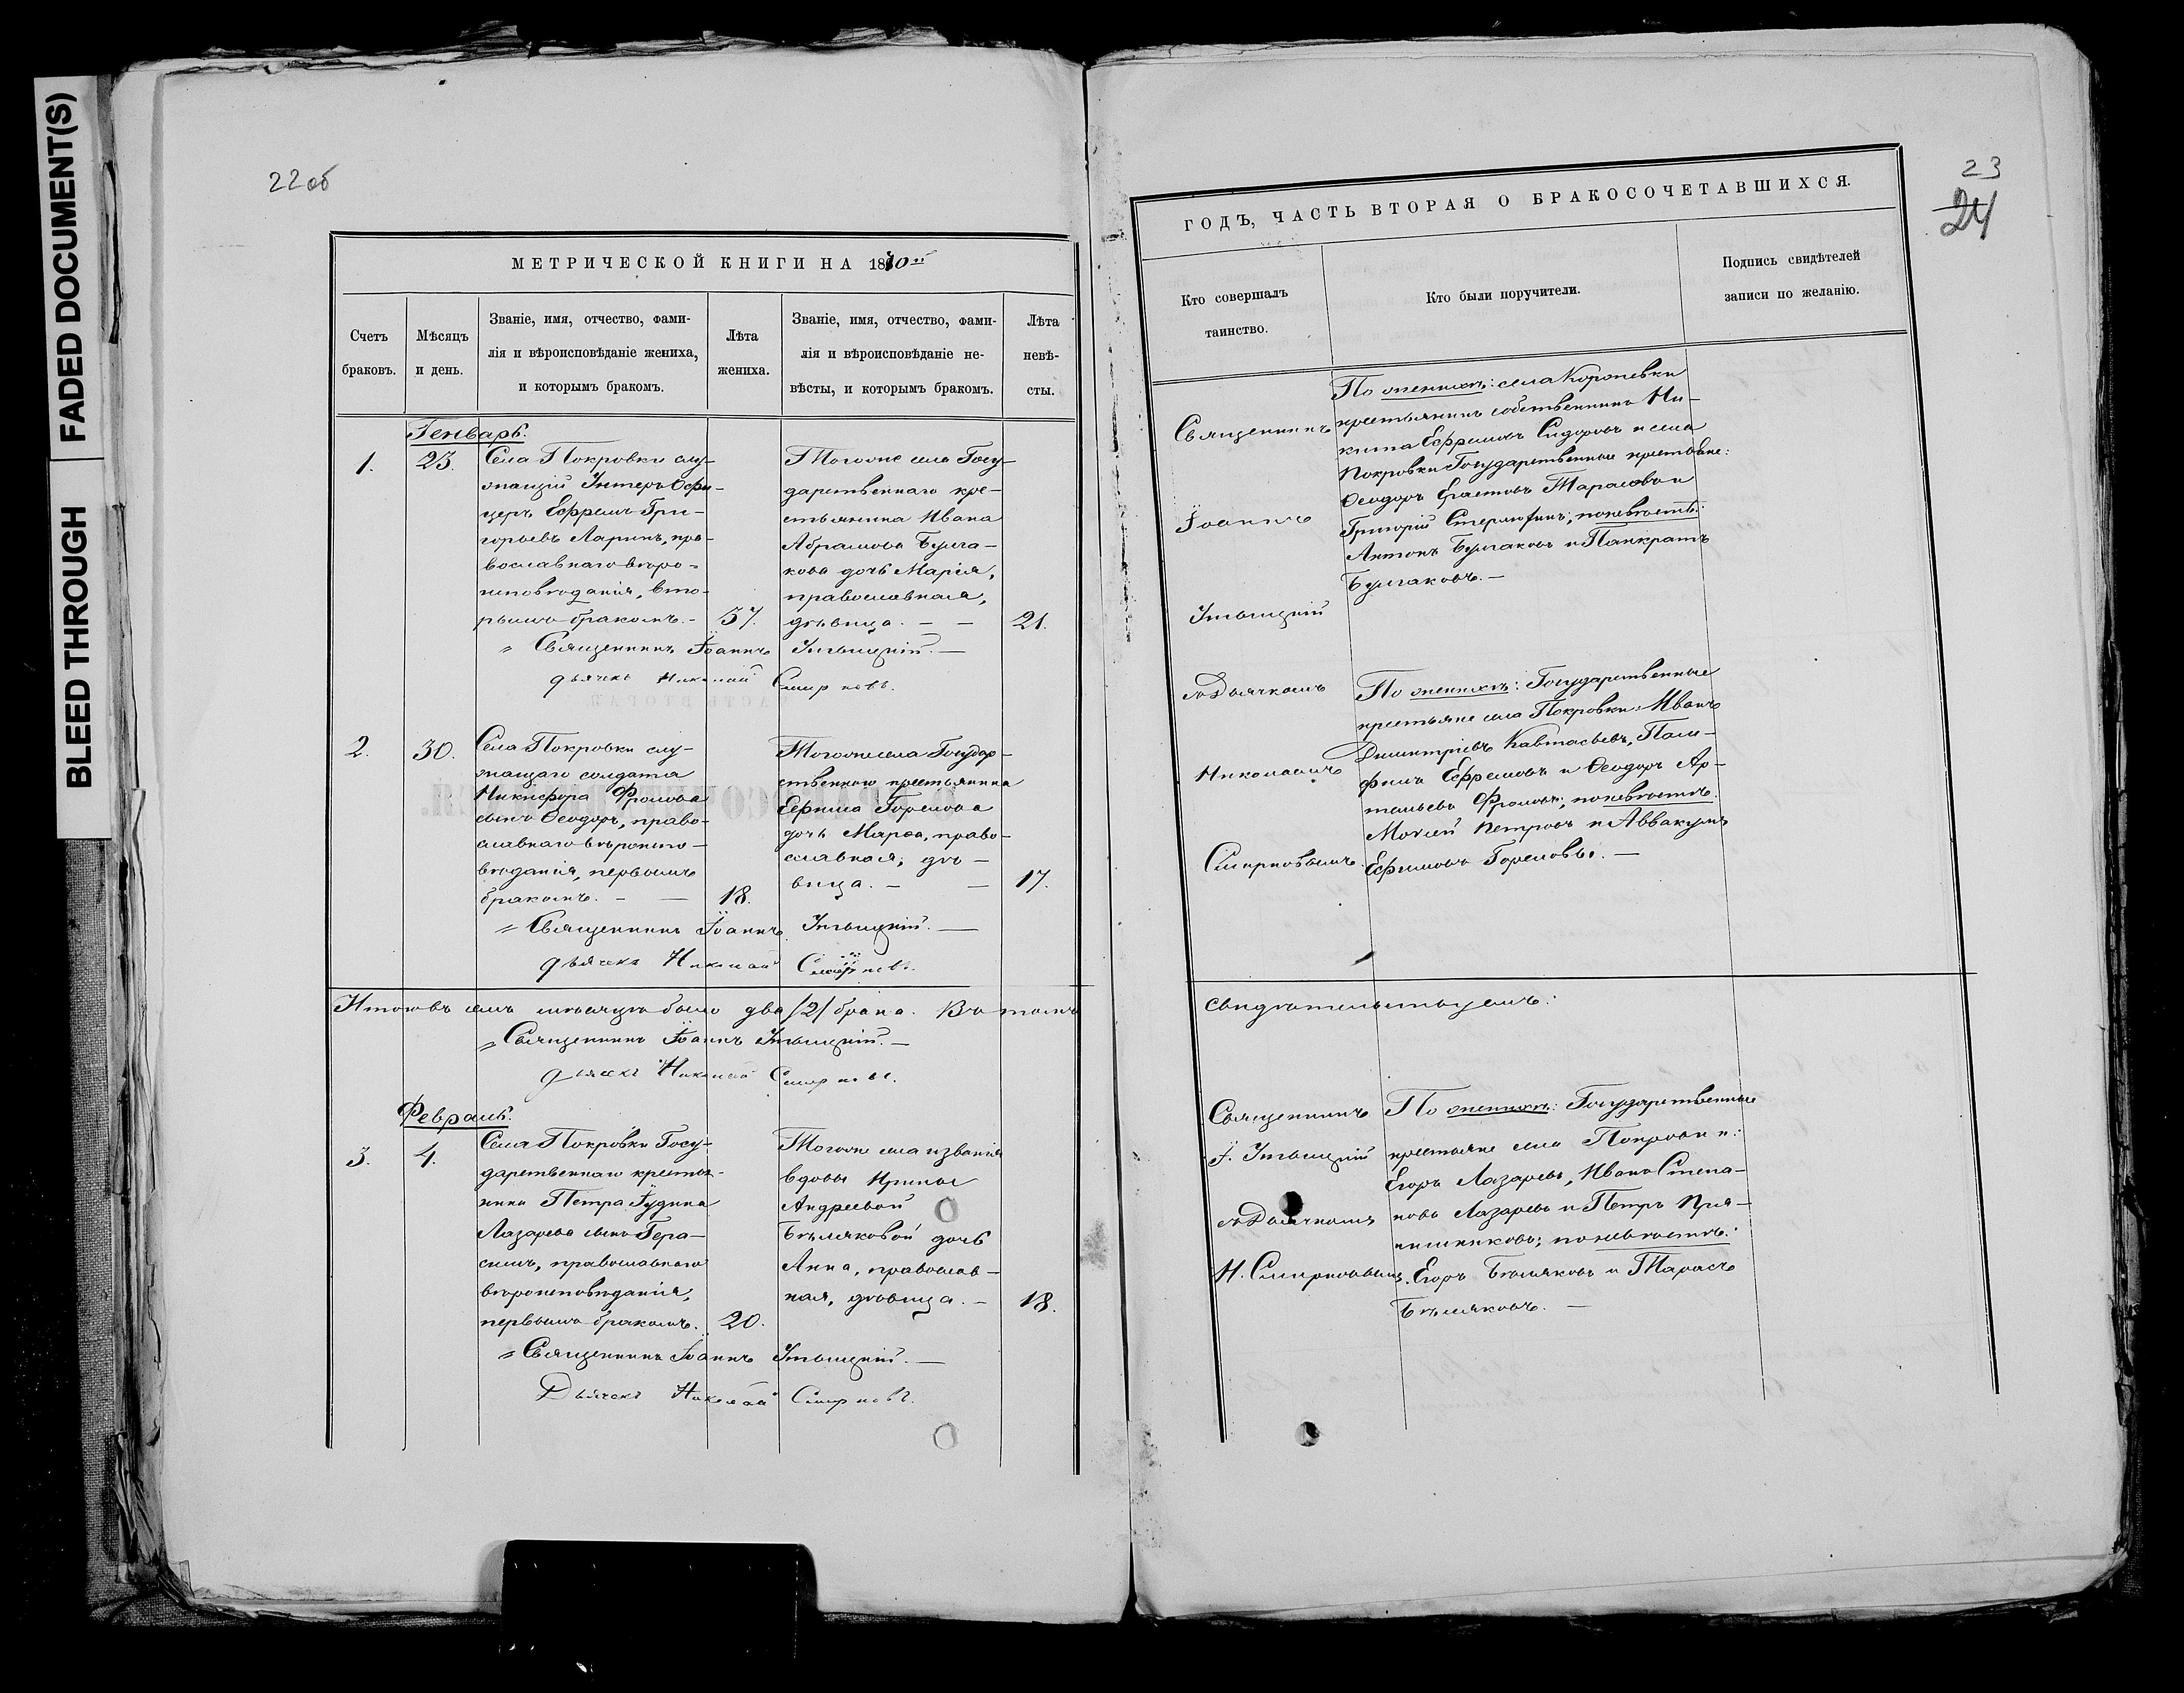 BLEED THROUGH
FADED DOCUMENT(S)
22 об
МЕТРИЧЕСКОЙ КНИГИ НА 1870й
Счетъ браковъ.
Мѣсяцъ и день.
Званіе, имя, отчество, фами-
лія и вѣроисповѣданіе жениха,
и которымъ бракомъ.
Лѣта жениха.
Званіе, имя, отчество, фами-
лія и вѣроисповѣданіе не-
вѣсты, и которымъ бракомъ.
Лѣта
невѣ-
сты.
Генварь.
1.
23.
Села Покровки слу-
жащій Унтеръ Офи-
церъ Ефремъ Гри-
горьевъ Ларинъ, пра-
вославнаго вѣро-
исповѣданія, вто-
рымъ бракомъ. -
37.
Тогоже села Госу-
дарственнаго кре-
стьянина Ивана
Абрамова Булга-
кова дочь Марія,
православная,
дѣвица. - -
21.
Священникъ Іоаннъ
дьячекъ Николай Смирновъ.
2.
30.
Села Покровки слу-
жащаго солдата
Никифора Фролова
сынъ Ѳеодоръ, право-
славнаго вѣроиспо-
вѣданія, первымъ
бракомъ. - -
18.
Тогоже села Государ-
ственнаго крестьянина
Ефима Горелова
дочь Марѳа, право-
славная, дѣ-
вица. - -
17.
Священникъ Іоаннъ
дьячекъ Николай Смирновъ.
Итого въ семъ мѣсяцѣ было два /2/ брака. Въ томъ
Священникъ Іоаннъ
дьячекъ Николай Смирновъ.
Февраль.
3.
4.
Села Покровки Госу-
дарственнаго крестья-
нина Петра Іудина
Лазарева сынъ Гера-
симъ, православнаго
вѣроисповѣданія,
первымъ бракомъ.
20.
Тогоже села званія
вдовы Ирины
Андреевой
Бѣляковой дочь
Анна, православ-
ная, дѣвица. -
18.
Священникъ Іоаннъ
Дьячекъ Николай Смирновъ.
23
24
ГОДЪ, ЧАСТЬ ВТОРАЯ О БРАКОСОЧЕТАВШИХСЯ.
Кто совершалъ
таинство.
Кто были поручители.
Подпись свидѣтелей
записи по желанію.
Священникъ
Іоаннъ
съ Дьячкомъ
Николаемъ
Смирновымъ.
По женихѣ: села Королевки
крестьянинъ собственникъ Ни-
кита Ефремовъ Сидоровъ и села
Покровки Государственные крестьяне:
Ѳеодоръ Тарасовъ и
Григорій по невѣстѣ:
Антонъ Булгаковъ и Панкратъ
Булгаковъ. -
По женихѣ: Государственные
крестьяне села Покровки: Иванъ
Димитріевъ Пам-
филъ Ефремовъ и Ѳеодоръ Ар-
Фроловы; по невѣстѣ:
Моисей Петровъ и Аввакумъ
Ефимовъ Гореловы. -
свидѣтельствуемъ:
Священникъ
І.
съ Дьячкомъ
Н. Смирновымъ.
По женихѣ: Государственные
крестьяне села Покровки:
Егоръ Лазаревъ, Иванъ Степа-
новъ Лазаревъ и Петръ Пря-
нишниковъ; по невѣстѣ:
Егоръ Бѣляковъ и Тарасъ
Бѣляковъ. -